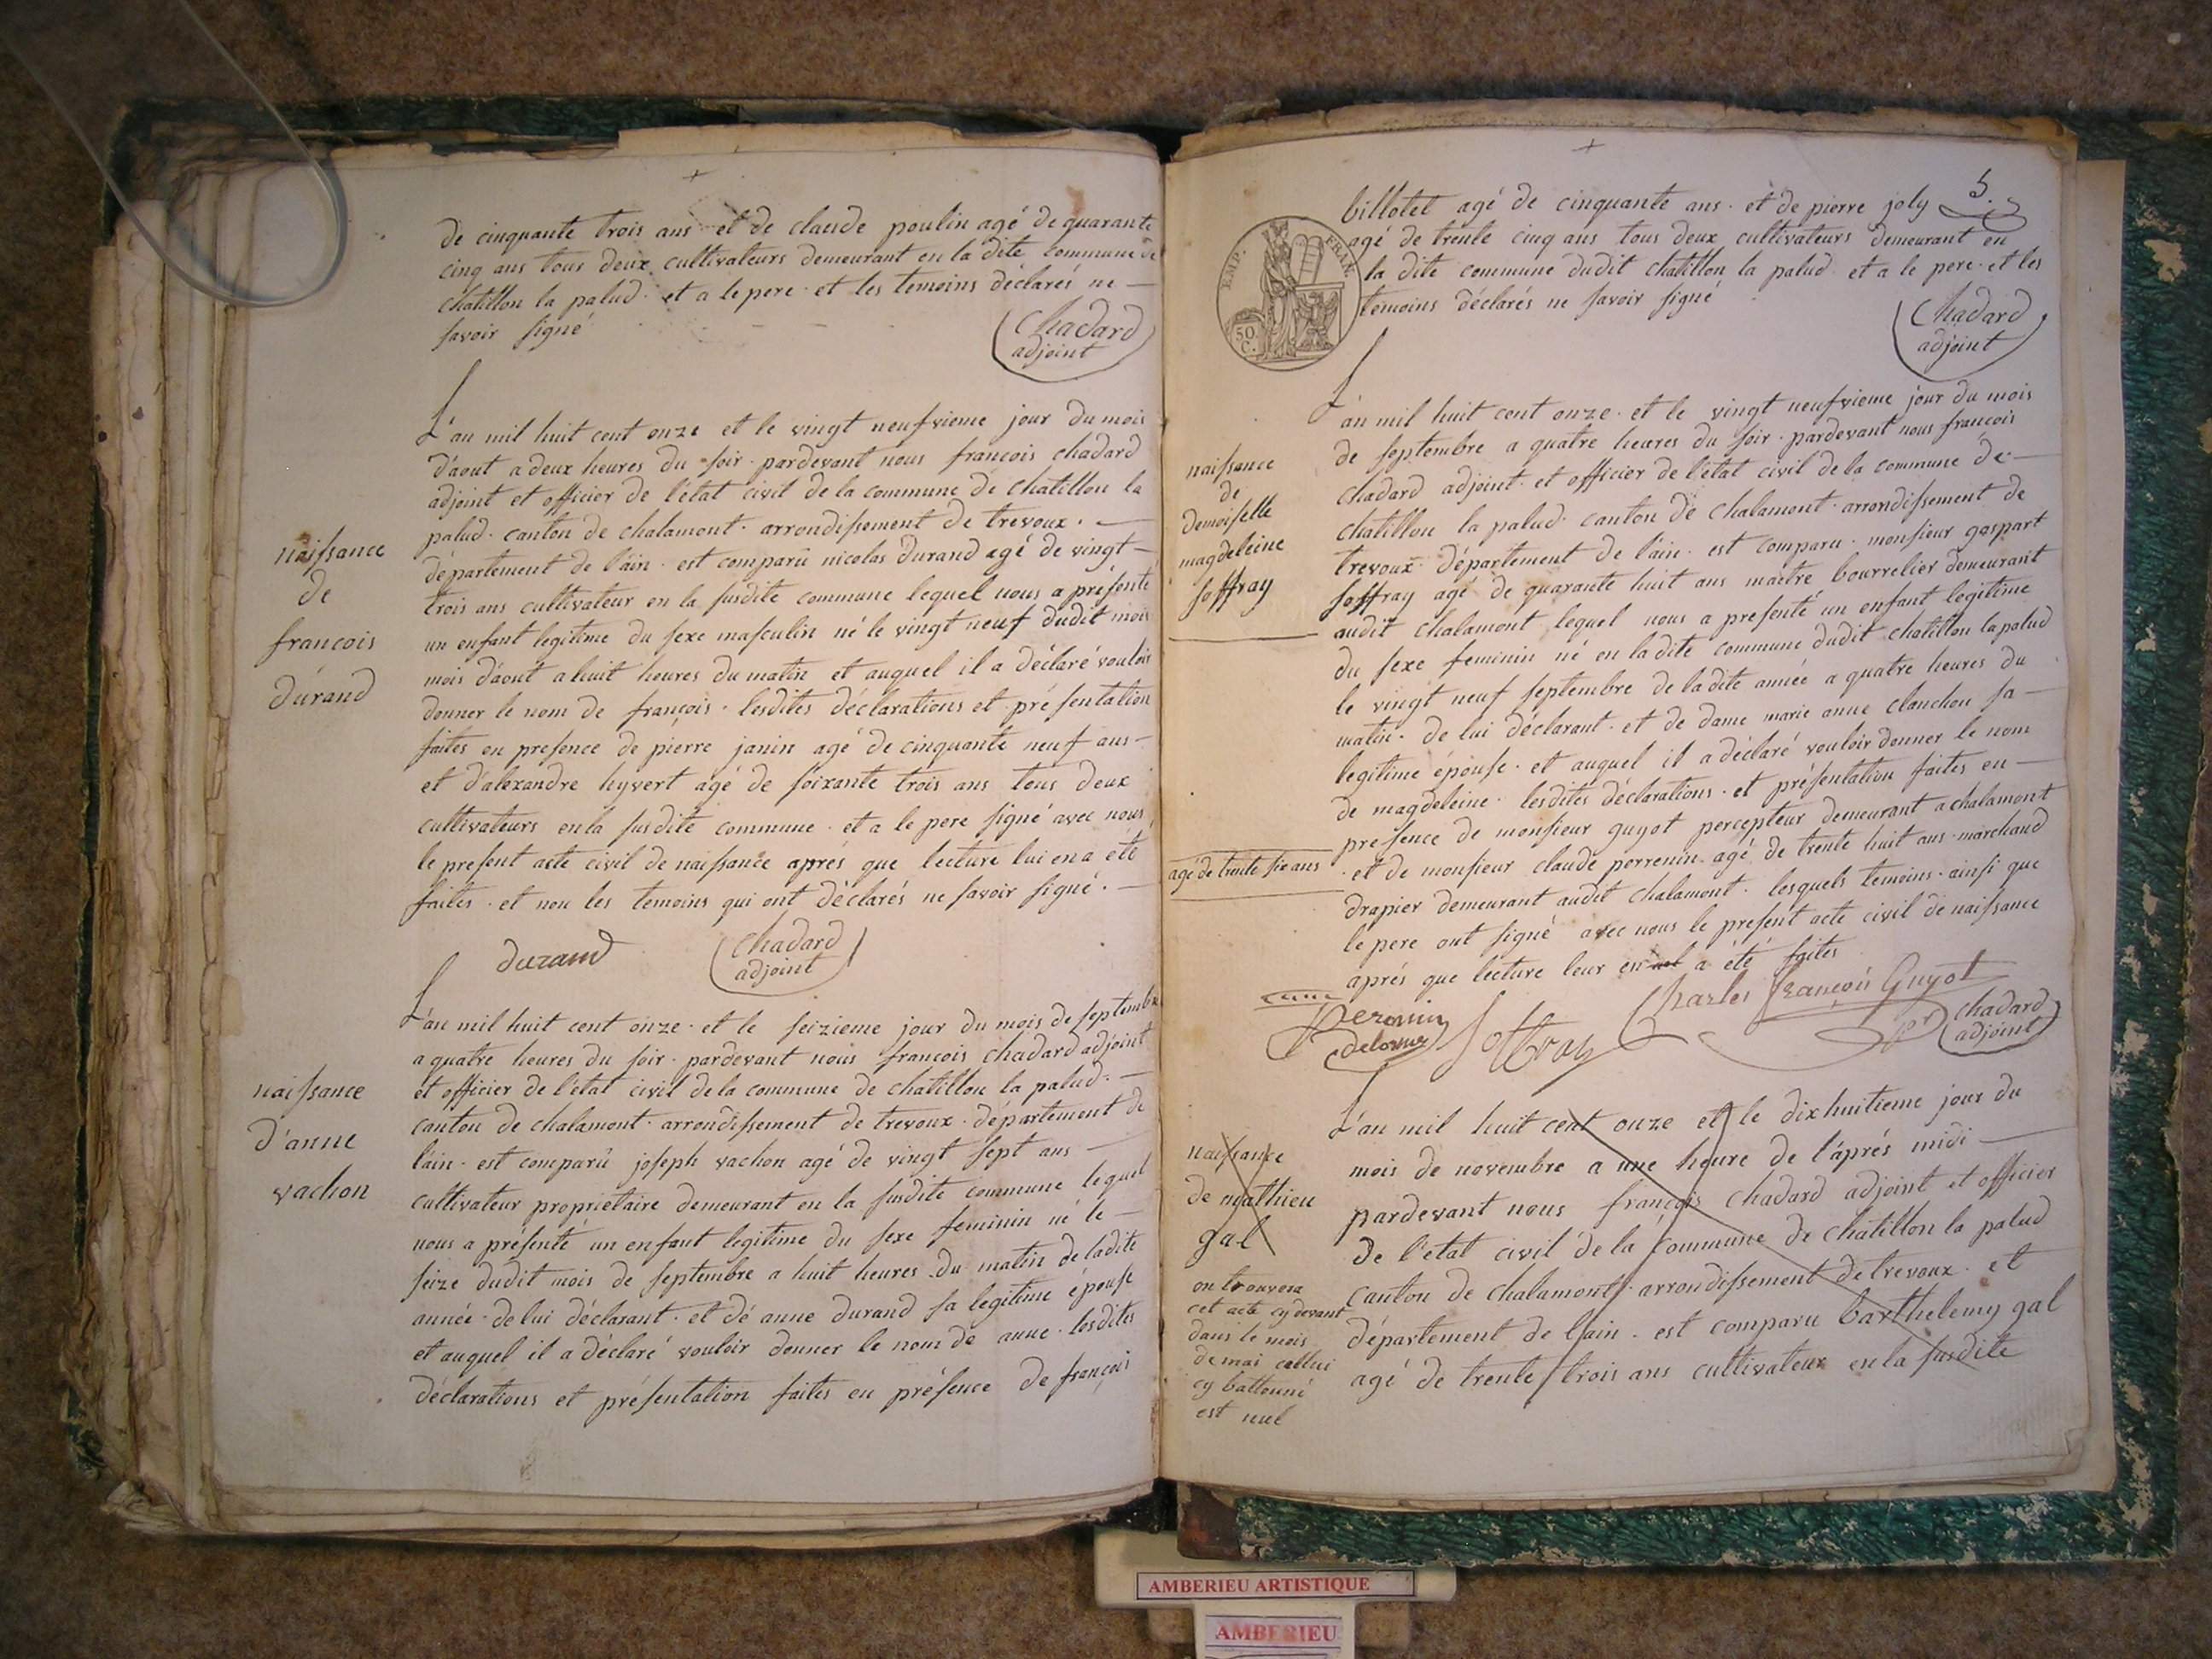 de cinquante trois ans et de claude poulin agé de quarante
cinq ans tous deux cultivateurs demeurant en la dite commune de
chatillon la palud. et a le pere et les temoins déclarés ne
savoir signé
Chadard
adjoint
L'an mil huit cent onze et le vingt neufvieme jour du mois
d'aout a deux heures du soir. pardevant nous francois chadard
adjoint et officier de l'état civil de la commune de chatillon la
palud. canton de chalamont. arrondissement de trevoux.
département de l'ain. est comparû nicolas durand agé de vingt
trois ans cultivateur en la susdite commune lequel nous a présenté
un enfant legitime du sexe masculin né le vingt neuf dudit mois
mois d'aout a huit heures du matin et auquel il a déclaré vouloir
donner le nom de françois. lesdites déclarations et présentation
faites en presence de pierre janin agé de cinquante neuf ans
et d'alexandre hyvert agé de soixante trois ans tous deux
cultivateurs en la susdite commune. et a le pere signé avec nous
le present acte civil de naissance aprés que lecture lui en a été
faites. et non les temoins qui ont déclarés ne savoir signé.
naissance
de
francois
durand
durand
Chadard
adjoint
L'an mil huit cent onze. et le seizieme jour du mois de septembre
a quatre heures du soir. pardevant nous francois chadard adjoint
et officier de l'état civil de la commune de chatillon la palud.
canton de chalamont. arrondissement de trevoux. département de
l'ain. est comparû joseph vachon agé de vingt sept ans
cultivateur proprietaire demeurant en la susdite commune lequel
nous a présenté un enfant legitime du sexe feminin né le
seize dudit mois de septembre a huit heures du matin de ladite
année. de lui déclarant. et de anne durand sa legitime épouse
et auquel il a déclaré vouloir donner le nom de anne. lesdites
déclarations et présentation faites en présence de françois
naissance
d'anne
vachon
5.
billotet agé de cinquante ans. et de pierre joly
agé de trente cinq ans tous deux cultivateurs demeurant en
la dite commune dudit chatillon la palud. et a le pere. et les
temoins déclarés ne savoir signé
EMP. FRAN.
50
C.
Chadard
adjoint
L'an mil huit cent onze. et le vingt neufvieme jour du mois
de septembre a quatre heures du soir. pardevant nous francois
chadard adjoint. et officier de l'état civil de la commune de
chatillon la palud. canton de chalamont. arrondissement de
trevoux. département de l'ain. est comparu. monsieur gaspart
soffray agé de quarante huit ans maitre bourrelier demeurant
audit chalamont lequel nous a presenté un enfant legitime
du sexe feminin né en ladite commune dudit chatillon la palud
le vingt neuf septembre de ladite année a quatre heures du
matin. de lui déclarant. et de dame marie anne clanchon sa
legitime épouse. et auquel il a déclaré vouloir donner le nom
de magdeleine. lesdites déclarations. et présentation faites en
presence de monsieur guyot percepteur demeurant a chalamont
. et de monsieur claude perrenin. agé de trente huit ans. marchand
drapier demeurant audit chalamont. lesquels temoins. ainsi que
le pere ont signé avec nous le present acte civil de naissance
aprés que lecture leur en a été faites
naissance
de
demoiselle
magdeleine
soffray
agé de trente six ans
Soffray
Charles François Guyot
Chadard
adjoint
L'an mil huit cent onze et le dixhuitieme jour du
mois de novembre a une heure de l'aprés midi
pardevant nous françois chadard adjoint et officier
de l'etat civil de la commune de chatillon la palud
canton de chalamont. arrondissement de trevoux. et
département de l'ain. est comparu barthelemy gal
agé de trente trois ans cultivateur en la susdite
naissance
de mathieu
gal
on trouvera
cet acte cy devant
dans le mois
de mai cellui
cy battonné
est nul
AMBERIEU ARTISTIQUE
AMBERIEU